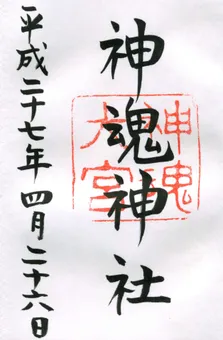 神魂神社
神魂
大宮
平成二十七年四月二十六日